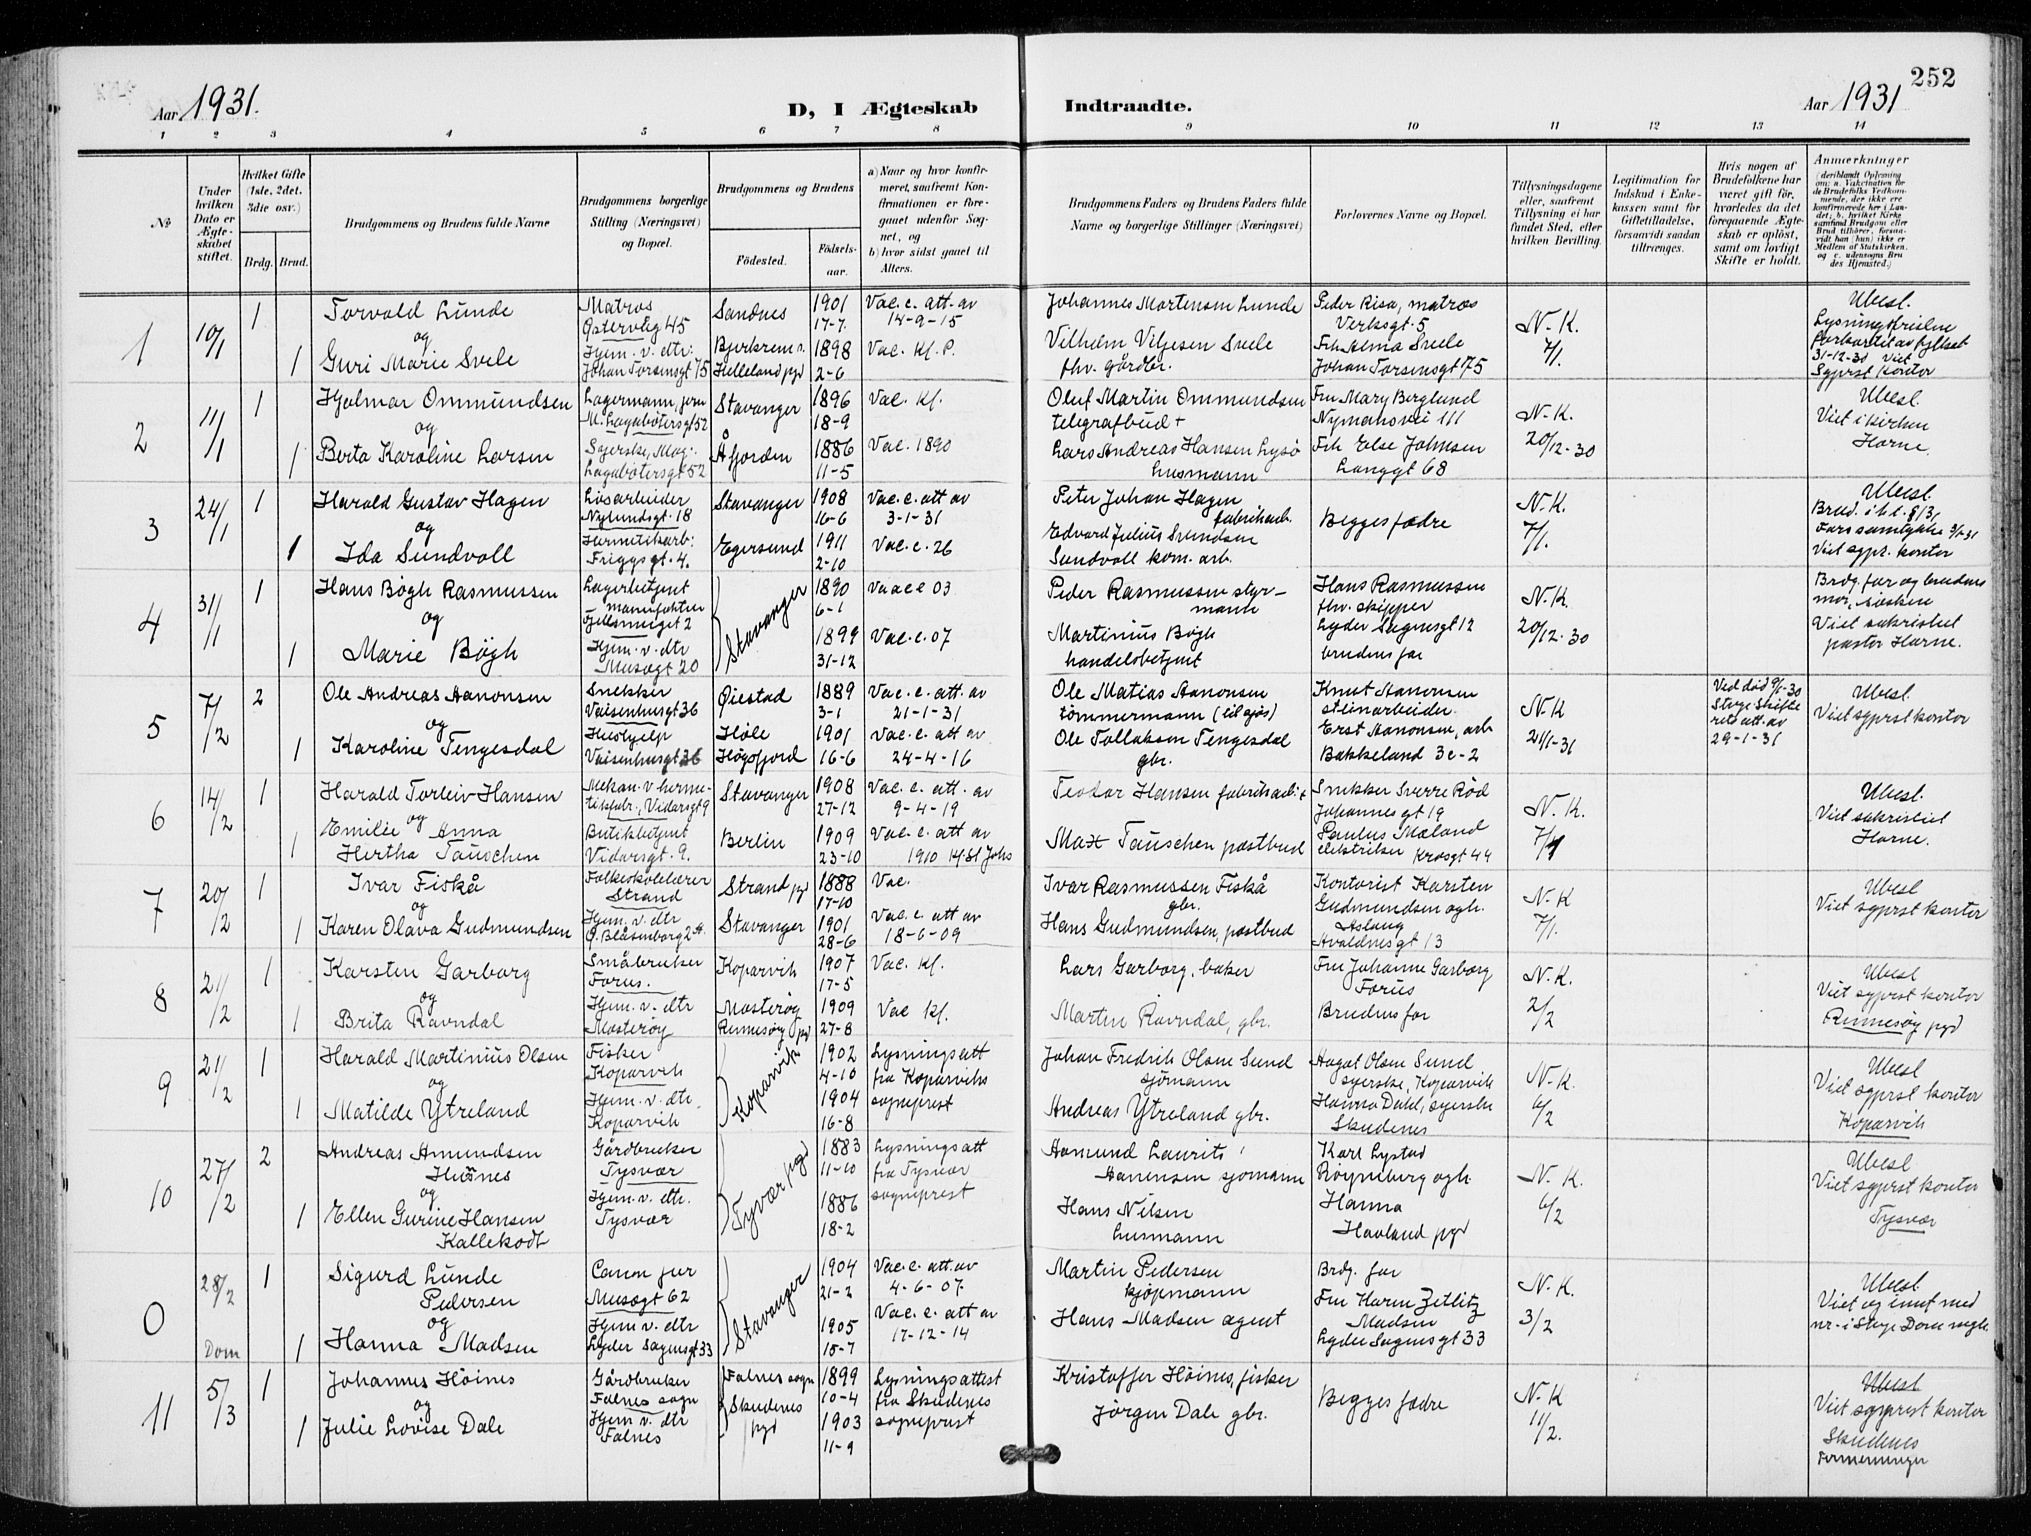 252
Aar 1931.
D, I Ægteskab Indtraadte.
Aar 1931
1 2 3 4 5 6 7 8 9 10 11 12 13 14
No
Under hvilken Dato er Ægteskabet stiftet.
Hvilket Gifte (1ste, 2det, 3die osv.)
Brdg. Brud.
Brudgommens og Brudens fulde Navne
Brudgommens borgerlige Stilling (Næringsvei) og Bopæl.
Brudgommens og Brudens
Födested.
Födselsaar.
a) Naar og hvor konfirmeret, saafremt Konfirmationen er foregaaet udenfor Sognet, og
b) hvor sidst gaaet til Alters.
Brudgommens Faders og Brudens Faders fulde Navne og borgerlige Stillinger (Næringsvei)
Forlovernes Navne og Bopæl.
Tillysningsdagene eller, saafremt Tillysning ei har fundet Sted, efter hvilken Bevilling.
Legitimation for Indskud i Enkekassen samt for Giftetilladelse, forsaavidt saadan tiltrænges.
Hvis nogen af Brudefolkene har været gift för, hvorledes da det foregaaende Ægteskab er oplöst, samt om lovligt Skifte er holdt.
Anmærkninger
1 10/1 1 Torvald Lunde
Matros
Østervåg 45
Sandnes
1901
17-7
Vac. c. att. av
14-9-15
Johannes Martensen Lunde
Peder Risa, matros
Verksgt. 5
N.K.
7/1.
Ubesl.
og
1 Guri Marie Svele
Hjem. v. dtr.
Johan Torsensgt 75
Bjerkreim s.
Helleland pgd
1898
2-6
Vac. Kf. P.
Vilhelm Viljesen Svele
fhv. gårdbr.
Frk Alma Svele
Johan Torsensgt 75
31-12-30 Viet
Sgprst Kontor
2 11/1 1 Hjalmar Ommundsen
Lagermann, jern
M. Lagabøtersgt 52
Stavanger
1896
18-9
Vac. Kf.
Oluf Martin Ommundsen
telegrafbud +
Fru Mary Berglund
Nymansvei 111
N.K.
20/12-30
Ubesl.
Viet i kirken
Horne.
og
1 Berta Karoline Larsen
Syerske, Mag.
Lagabøtersgt 52
Åfjorden
1886
11-5
Vac. 1890
Lars Andreas Hansen Lysø
husmann
Frk Else Johnsen
Langgt 68
3 24/1 1 Harald Gustav Hagen
Løsarbeider
Nylundsgt. 18
Stavanger
1908
16-6
Vac. c. att av
3-1-31
Peter Johan Hagen
fabrikarb.
Begges fædre
N.K.
7/1.
Ubesl.
Fars samtykke 3/1-31
Viet sgpr. kontor
og
1 Ida Sundvoll
Hermetikarb:
Friggsgt. 4.
Egersund
1911
2-10
Vac. c. 26
Edvard Julius Svendsen
Sundvoll kom. arb.
4 31/1 1 Hans Bøgh Rasmussen
Lagerbetjent
manufaktur
Stavanger
1890
6-1
Vac c 03
Peder Rasmussen styrmann
Hans Rasmussen
fhv. skipper
Lyder Sagensgt 12
N.K.
20/12-30
Brdg. far og brudens
mor, søsken
Viet sakristiet
pastor Horne.
og
1 Marie Bøgh
Hjem. v. dtr
Musægt 20
1899
31-12
Vac. c. 07
Martinius Bøgh
handelsbetjent
brudens far
5 7/2 2 Ole Andreas Aanonsen
Snekker
Vaisenhusgt 36
Øiestad
1889
3-1
Vac. c. att. av
21-1-31
Ole Matias Aanonsen
tømmermann (til sjøs)
Knut Aanonsen
stenarbeider
N.K
21/1-31
Ved død 9/1-30
Stvgr Skifte
rett att. av
29-1-31
Ubesl.
Viet sgprst kontor
og
1 Karoline Tengesdal
Hushjelp
Vaisenhusgt 36
Høle
Høgsfjord
1901
16-6
Vac. c. att av
24-4-16
Ole Tollaksen Tengesdal
gbr.
Erst Aanonsen, arb
Bakkeland 3c-2
6 14/2 1 Harald Torleiv Hansen
Mekan. v hermetikfabr., Vidarsgt 9
Stavanger
1908
27-12
Vac. c. att. av
9-4-19
Teodor Hansen fabrikarb. +
Snekker Sverre Rød
Johannesgt 19
N.K.
7/1
Ubesl.
Viet sakristiet
Horne.
og
1 Emilie Anna
Hertha Tauschen
Butikbetjent
Vidarsgt. 9.
Berlin
1909
23-10
Vac. c. att av
1910 14. St Johs
Max Tauschen postbud
Paulus Mæland
elektriker Krosgt 44
7 20/2 1 Ivar Fiskå
Folkeskolelærer
Strand
Strand pgd
1888
17-10
Vac.
Ivar Rasmussen Fiskå
gbr.
Kontorist Karsten
Gudmundsen ogh.
N.K
7/1.
Ubesl
Viet sgprst kontor
og
1 Karen Olava Gudmundsen
Hjem. v. dtr
Ø. Blåsenborg 24.
Stavanger
1901
28-6
Vac. c att av
18-6-09
Hans Gudmundsen, postbud
Aslaug
Avaldnesgt 13
8 21/2 1 Karsten Garborg
Småbruker
Forus.
Koparvik
1907
17-5
Vac. Kf.
Lars Garborg, baker
Fru Johanne Garborg
Forus
N.K.
2/2
Ubesl
Viet sgprst kontor
Rennesøy pgd
og
1 Brita Ravndal
Hjem. v. dtr
Mosterøy
Mosterøy
Rennesøy pgd
1909
27-8
Vac Kf.
Martin Ravndal, gbr.
Brudens far
9 21/2 1 Harald Martinius Olsen
Fisker
Koparvik
Koparvik
1902
4-10
Lysningsatt
fra Koparviks
sogneprest
Johan Fredrik Olsen Sund
sjømann
Hagat Olsen Sund
syerske, Koparvik
N.K.
6/2
Ubesl
Viet sgprst kontor
Koparvik
og
1 Matilde Ytreland
Hjem. v. dtr.
Koparvik
1904
16-8
Andreas Ytreland gbr.
Hanna Dahl, syerske
Skudenes
10 27/2 2 Andreas Amundsen
Hesnes
Gårdbruker
Tysvær
Tysvær pgd
1883
11-10
Lysningsatt
fra Tysvær
sogneprest
Aamund Laurits
Aanensen sjømann
Karl Lystad
Røyneberg ogh.
N.K.
6/2
Ubesl
Viet sgprst kontor
Tysvær
og
1 Ellen Gurine Hansen
Kallekodt
Hjem. v. dtr.
Tysvær
1886
18-2
Hans Nilsen
husmann
Hanna
Haaland pgd
0 28/2 1 Sigurd Lunde
Pedersen
Canon jur
Musægt 62
Stavanger
1904
21-2
Vac. c. att. av
4-6-07
Martin Pedersen
kjøpmann
Brdg. far
N.K.
3/2
Ubesl
Viet og innf med
nr. i Stvgr Dom regb.
og
Dom 1 Hanna Madsen
Hjem v. dtr
Lyder Sagensgt 33
1905
15-7
Vac. c. att av
17-12-14
Hans Madsen agent
Fru Karen Zetlitz
Madsen
Lyder Sagensgt 33
11 5/3 1 Johannes Høines
Gårdbruker
Falnes sogn
Falnes sogn
Skudenes
pgd
1899
10-4
Lysningsattest
fra Skudenes
sogneprest
Kristoffer Høines, fisker
Begges fædre
N.K
11/2.
Ubesl
Viet sgprest kontor
Skudenes
Fermenninger
og
1 Julie Lovise Dale
Hjem v. dtr
Falnes
1903
11-9
Jørgen Dale gbr.